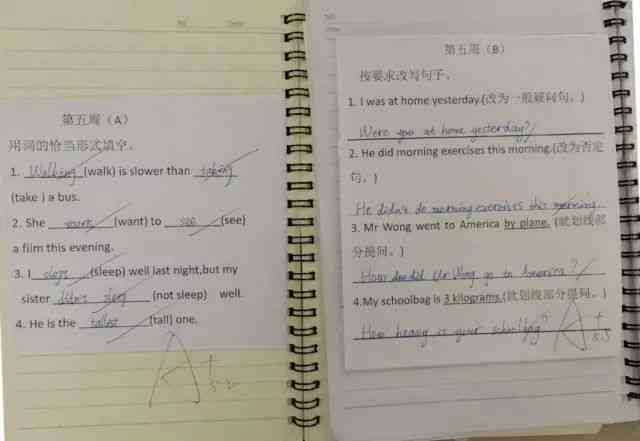 第五周（A）
用词的恰当形式填空。
1. Walking (walk) is slower than taking
(take ) a bus.
2. She wants (want) to see (see)
a film this evening.
3. I (sleep) well last night,but my
sister didn't sleep (not sleep) well.
4. He is the tallest (tall) one.
A+
第五周（B）
按要求改写句子。
1. I was at home yesterday.(改为一般疑问句。)
Were you at home yesterday?
2. He did morning exercises this morning.(改为否定
句。)
He didn't do morning exercises this morning.
3. Mr Wong went to America by plane. (就划线部
分提问。)
How did Mr Wong go to America?
4.My schoolbag is 3 kilograms.(就划线部分提问。)
How heavy is your schoolbag?
A+